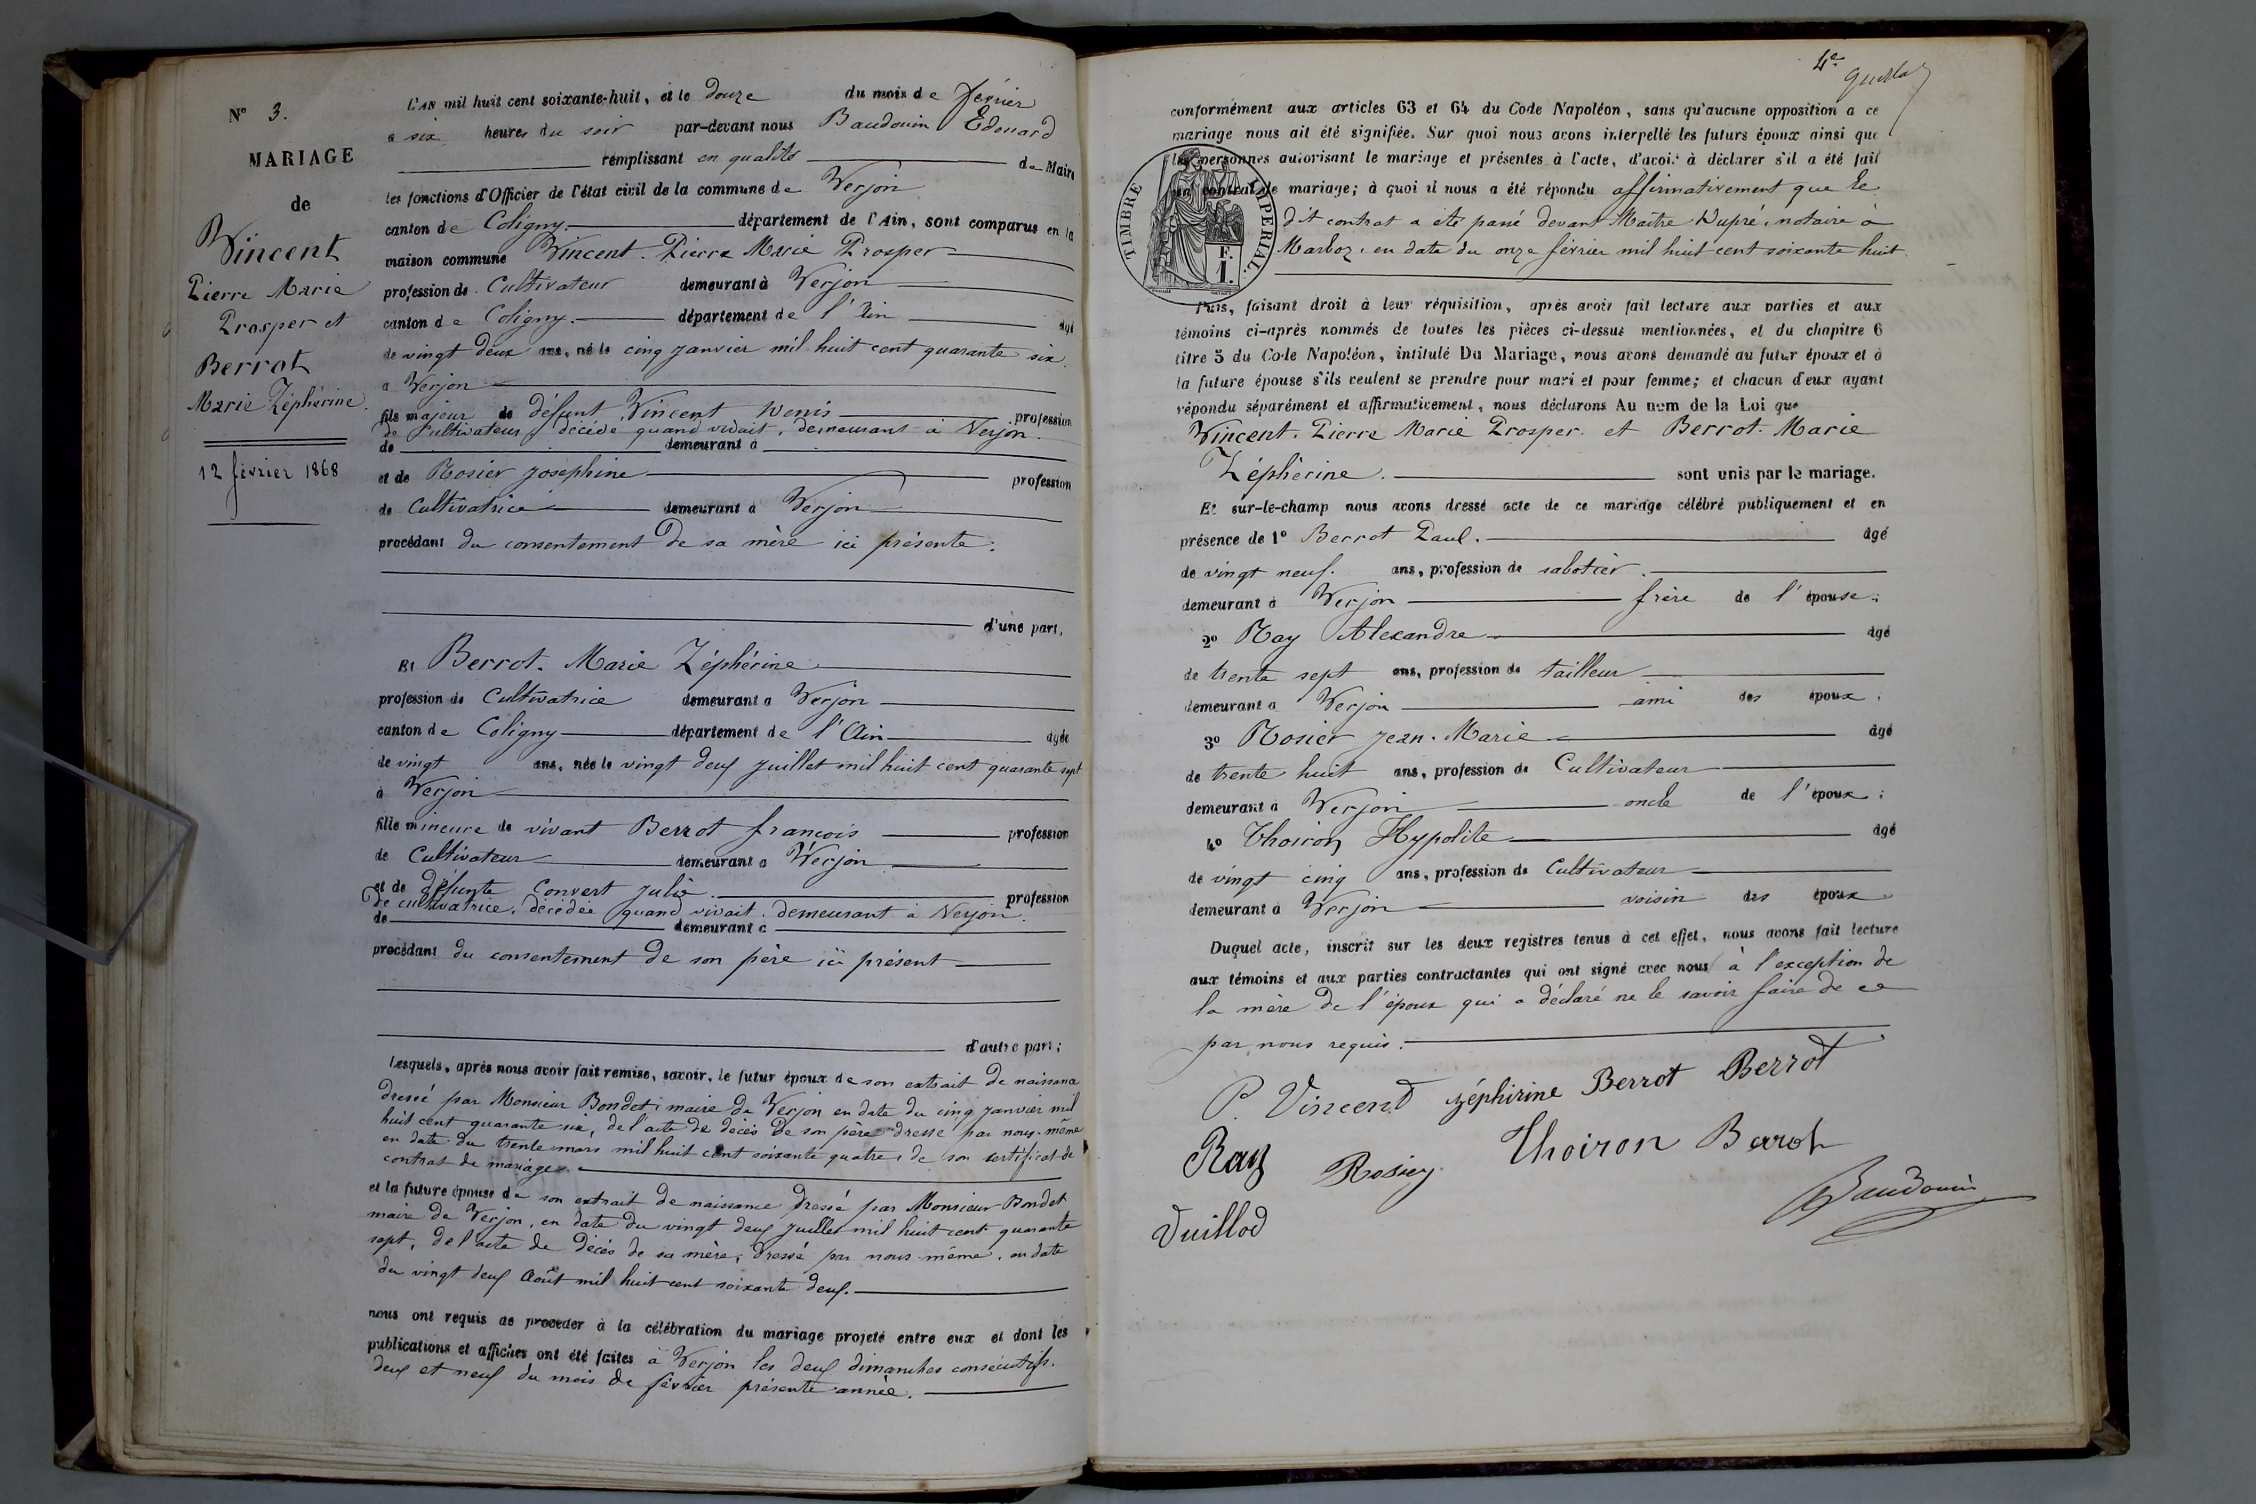 N° 3.
MARIAGE
de
Vincent
Pierre Marie
Prosper et
Berrot
Marie Zéphérine
12 février 1868
L'AN mil huit cent soixante-huit, et le douze du mois de février
a six heures du soir par-devant nous Baudouin Edouard
remplissant en qualité de Maire
les fonctions d'Officier de l'état civil de la commune de Verjon
canton de Coligny. département de l'Ain, sont comparus en la
maison commune Vincent. Pierre Marie Prosper
profession de Cultivateur demeurant à Verjon
canton de Coligny. département de l'Ain âgé
de vingt deux ans, né le cinq janvier mil huit cent quarante six.
a Verjon
fils majeur de défunt Vincent Denis profession
de cultivateur, décédé quand vivait, demeurant à Verjon.
de demeurant à
et de Rosier Josephine profession
de Cultivatrice demeurant à Verjon
procédant du consentement de sa mère ici présente.
d'une part,
Et Berrot. Marie Zéphérine
profession de Cultivatrice demeurant à Verjon
canton de Coligny département de l'Ain âgée
de vingt ans, née le vingt deux juillet mil huit cent quarante sept
à Verjon
fille mineure de vivant Berrot françois profession
de Cultivateur demeurant a Verjon
et de défunte Convert Julie. profession
de cultivatrice, décédée quand vivait. demeurant à Verjon.
de demeurant à
procédant du consentement de son père ici présent
d'autre part;
Lesquels, après nous avoir fait remise, savoir, le futur époux de son extrait de naissance
dressé par Monsieur Bondet, maire de Verjon en date du cinq janvier mil
huit cent quarante six, de l'acte de décès de son père dressé par nous-même
en date du trente mars mil huit cent soixante quatre, de son certificat de
contrat de mariage.
et la future épouse de son extrait de naissance dressé par Monsieur Bondet
maire de Verjon, en date du vingt deux juillet mil huit cent quarante
sept, de l'acte de décès de sa mère, dressé par nous même, en date
du vingt deux Août mil huit cent soixante deux.
nous ont requis de procéder à la célébration du mariage projeté entre eux et dont les
publications et affiches ont été faites à Verjon les deux dimanches consécutifs.
deux et neuf du mois de février présente année.
4e
conformément aux articles 63 et 64 du Code Napoléon, sans qu'aucune opposition a ce
mariage nous ait été signifiée. Sur quoi nous avons interpellé les futurs époux ainsi que
les personnes autorisant le mariage et présentes à l'acte, d'avoir à déclarer s'il a été fait
un contrat de mariage; à quoi il nous a été répondu affirmativement que le
dit contrat a été passé devant Maître Dupré, notaire à
Marboz, en date du onze février mil huit cent soixante huit.
TIMBRE IMPERIAL.
F.
1.
Puis, faisant droit à leur réquisition, après avoir fait lecture aux parties et aux
témoins ci-après nommés de toutes les pièces ci-dessus mentionnées, et du chapitre 6
titre 5 du Code Napoléon, intitulé Du Mariage, nous avons demandé au futur époux et à
la future épouse s'ils veulent se prendre pour mari et pour femme; et chacun d'eux ayant
répondu séparément et affirmativement, nous déclarons Au nom de la Loi que
Vincent. Pierre Marie Prosper. et Berrot. Marie
Zéphérine. sont unis par le mariage.
Et sur-le-champ nous avons dressé acte de ce mariage célébré publiquement et en
présence de 1° Berrot Paul. âgé
de vingt neuf. ans, profession de sabotier.
demeurant à Verjon frère de l'épouse;
2° Ray Alexandre âgé
de trente sept ans, profession de tailleur
demeurant a Verjon ami des époux.
3° Rosier Jean-Marie âgé
de trente huit ans, profession de Cultivateur
demeurant à Verjon oncle de l'époux;
4° Thoiron Hypolite âgé
de vingt cinq ans, profession de Cultivateur
demeurant à Verjon voisin des époux
Duquel acte, inscrit sur les deux registres tenus à cet effet, nous avons fait lecture
aux témoins et aux parties contractantes qui ont signé avec nous à l'exception de
la mère de l'époux qui a déclaré ne le savoir faire de ce
par nous requis.
P. Vincent zéphirine Berrot Berrot
Ray Rosier Thoiron Berrot
Baudouin
Vuillod